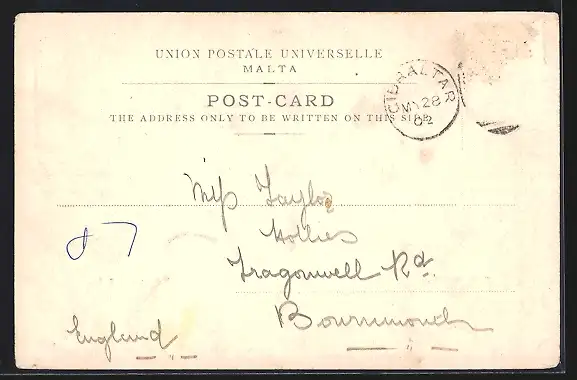 UNION POSTALE UNIVERSELLE
MALTA
POST-CARD
THE ADDRESS ONLY TO BE WRITTEN ON THIS SIDE
GIBRALTAR
MY 28
02
Miss Taylor
Hollies
Tragonwell Rd.
Bournmouth
England
87